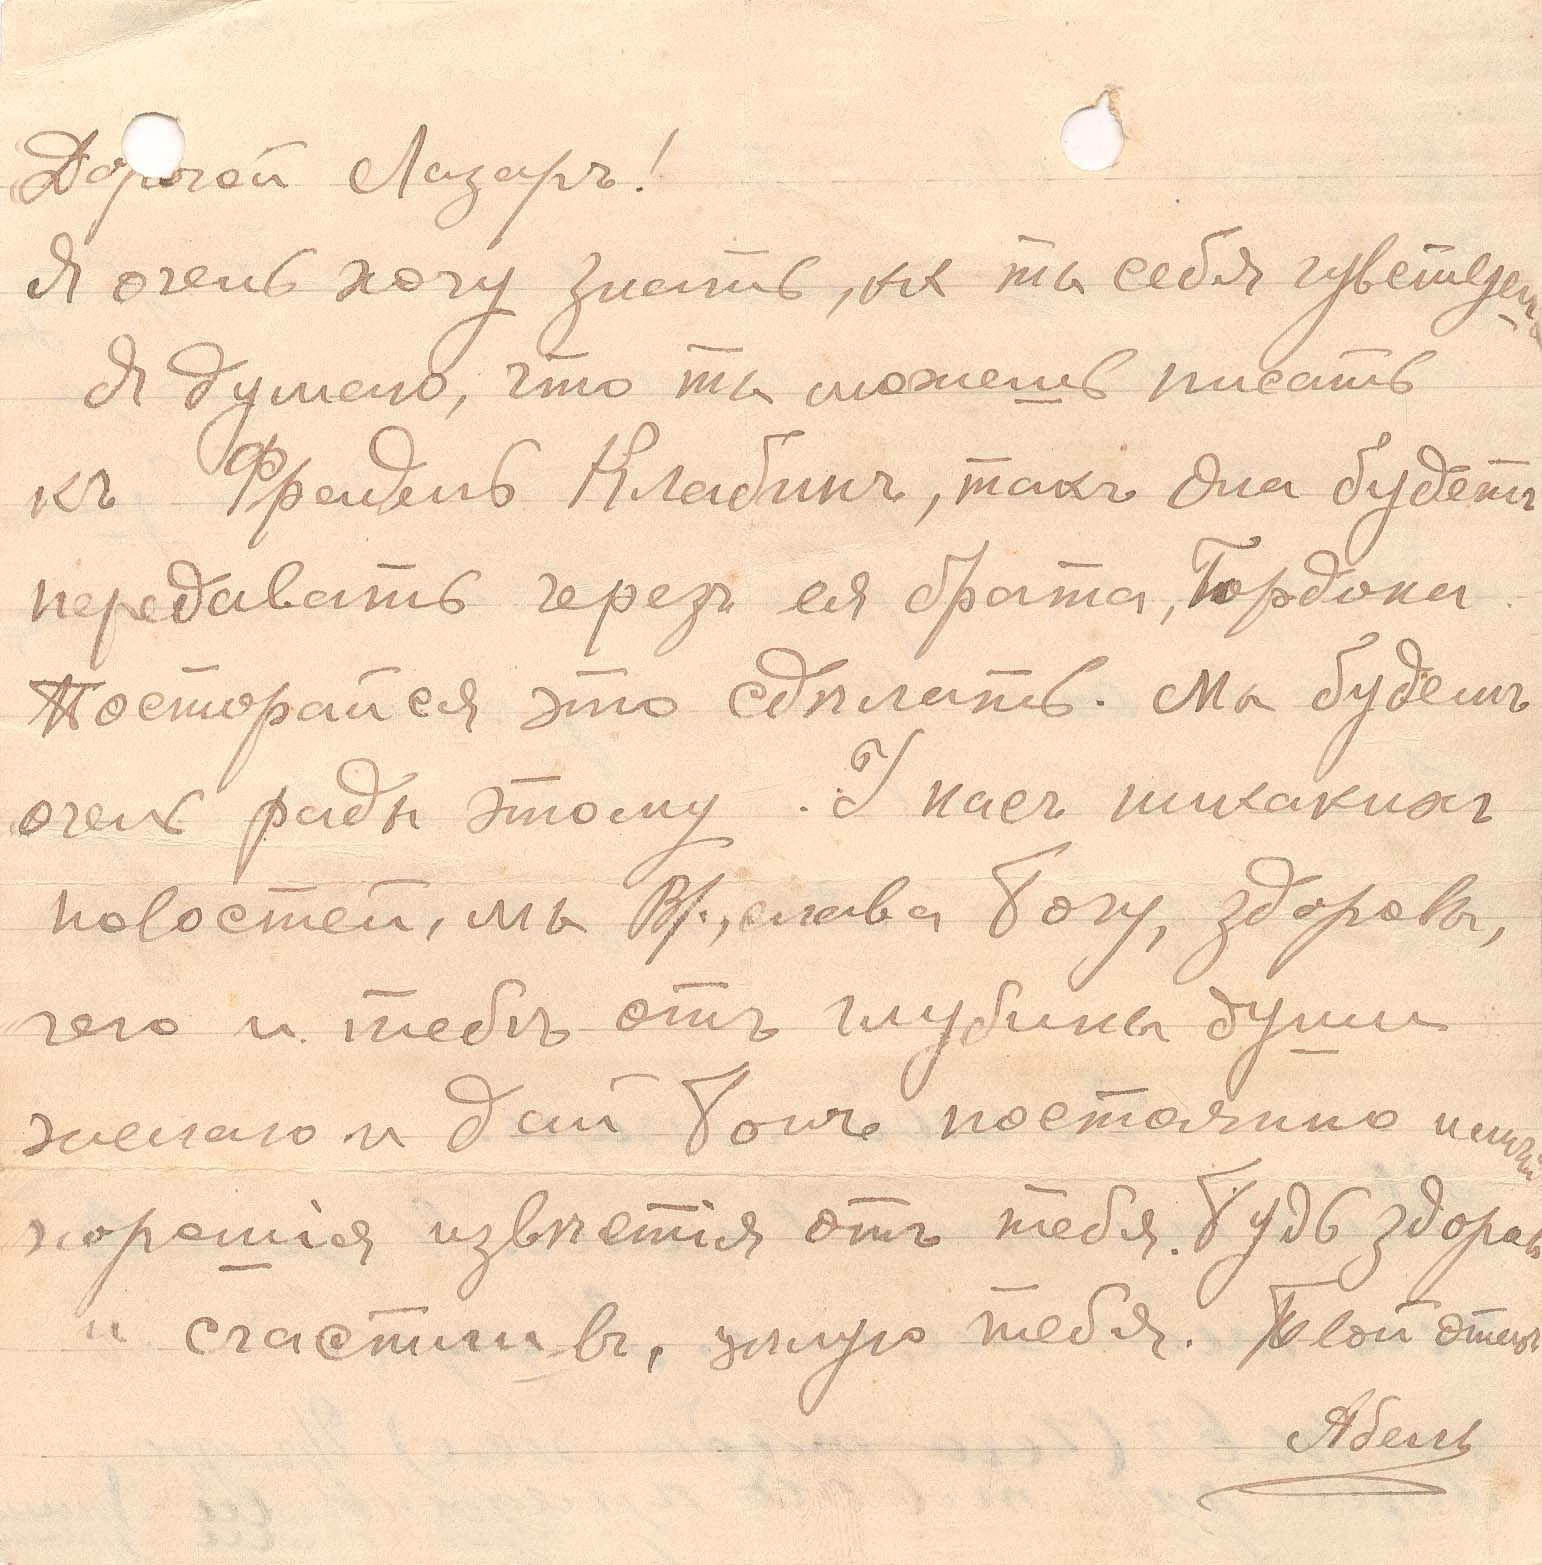 Дорогой Лазарь!
Я очень хочу знать, как ты себя чувствуешь
Я думаю, что ты можешь писать
къ Фрейдень Клабинъ, такъ она будетъ
передавать черезъ ея брата, Гордона
Постарайся это сдѣлать. Мы будемъ
очень рады этому. У насъ никакихъ
новостей, мы вс., слава Богу, здоровы,
чего и тебѣ отъ глубины души
желаю и дай Богъ постоянно
хорошія извѣстія отъ тебя. Будь здоровъ
и счастливъ, цѣлую тебя. Твой отецъ
Абель